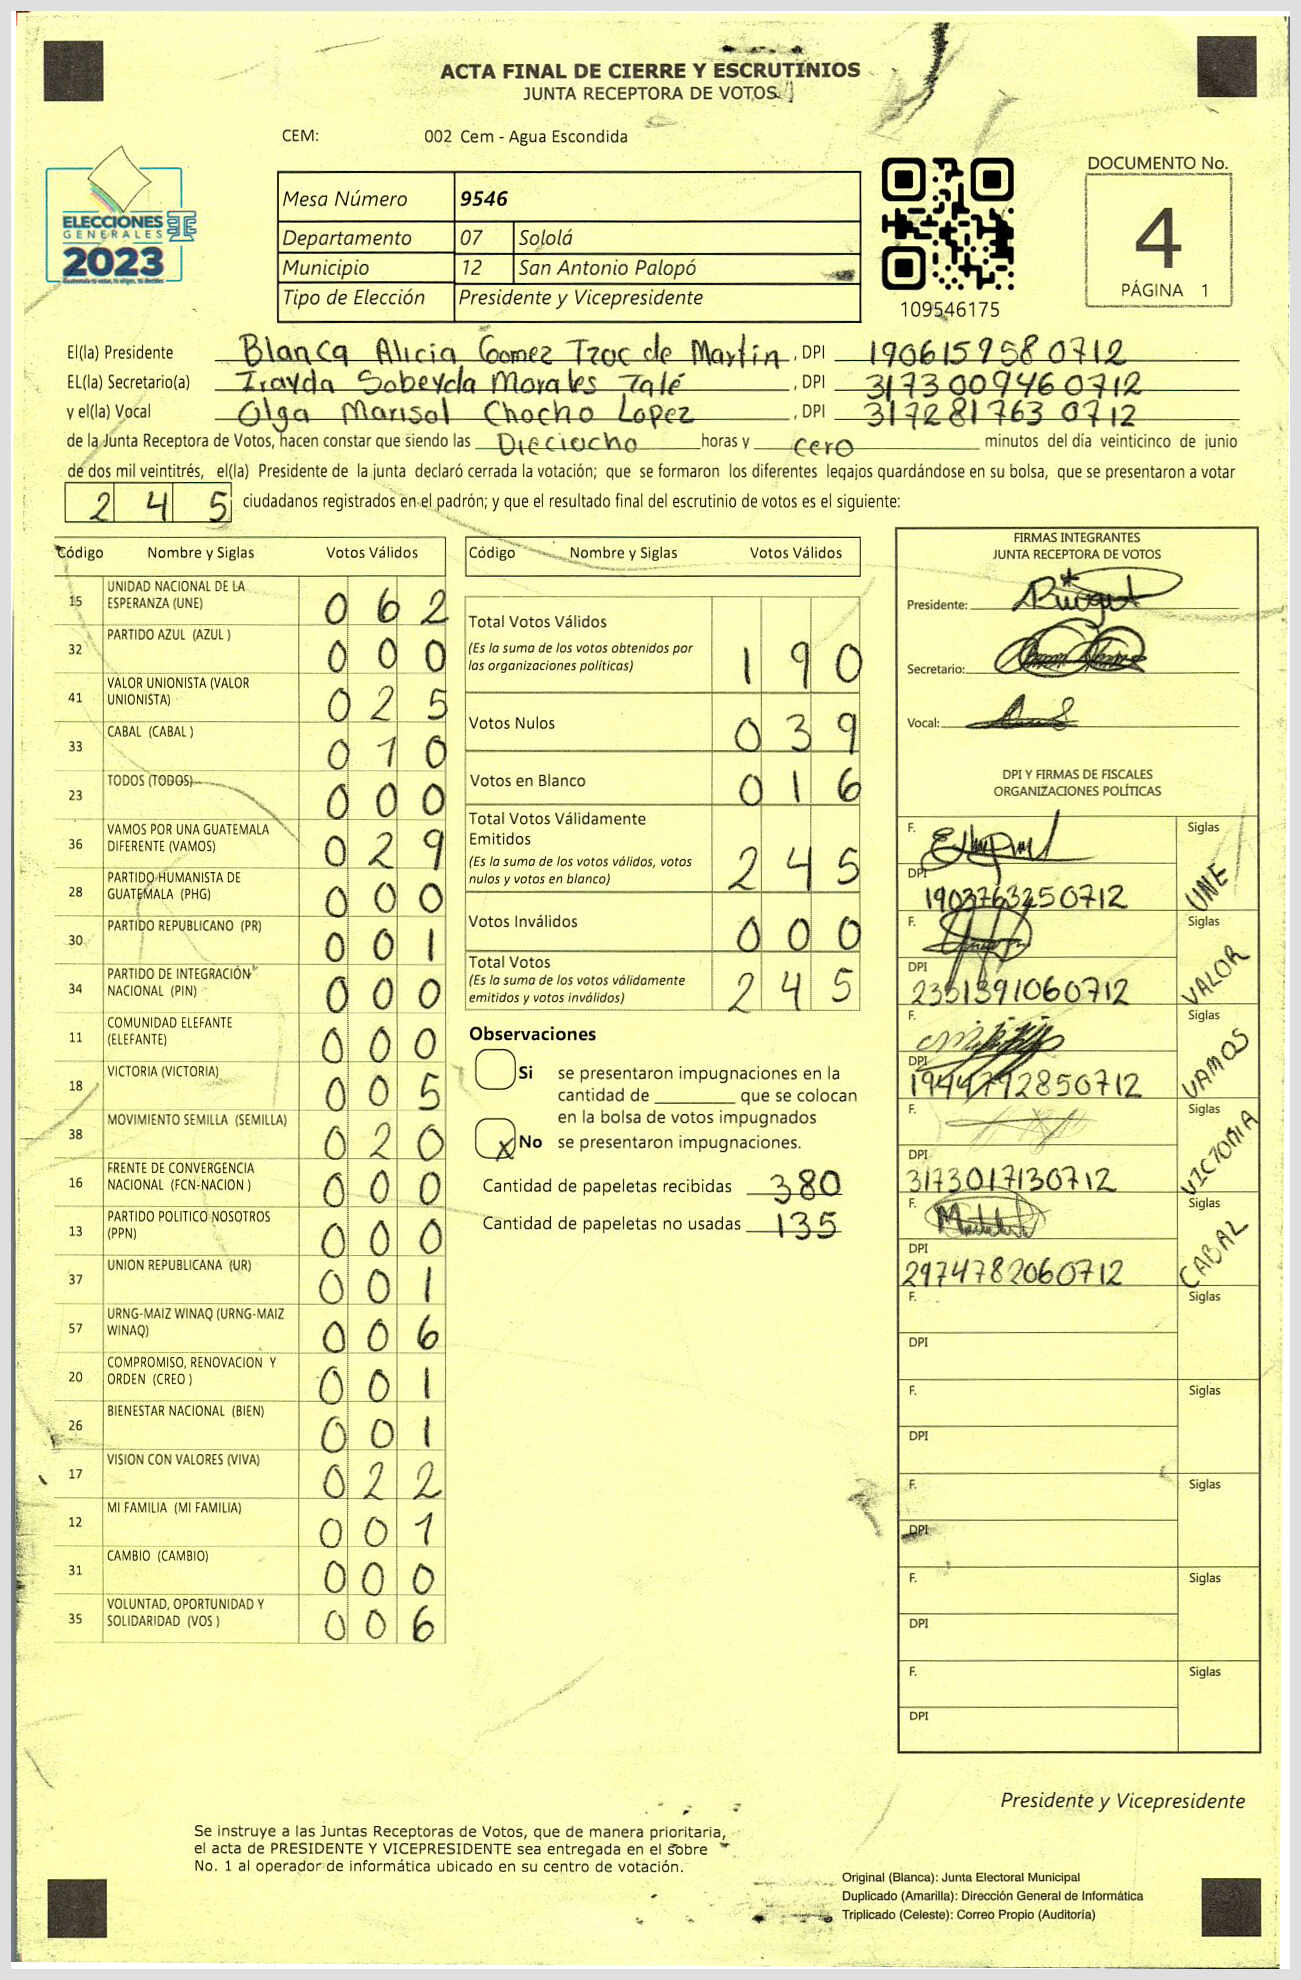 ACTA FINAL DE CIERRE Y ESCRUTINIOS
JUNTA RECEPTORA DE VOTOS
CEM: 002 Cem - Agua Escondida
ELECCIONES
GENERALES
2023
Mesa Número 9546
Departamento 07 Sololá
Municipio 12 San Antonio Palopó
Tipo de Elección Presidente y Vicepresidente
109546175
DOCUMENTO No.
4
PÁGINA 1
El(la) Presidente Blanca Alicia Gomez Tzoc de Martin, DPI 190615958 0712
EL(la) Secretario(a) Irayda Sobeyda Morales Talé, DPI 317300946 0712
y el(la) Vocal Olga Marisol Chocho Lopez, DPI 317281763 0712
de la Junta Receptora de Votos, hacen constar que siendo las Dieciocho horas y cero minutos del día veinticinco de junio
de dos mil veintitrés, el(la) Presidente de la junta declaró cerrada la votación; que se formaron los diferentes legajos quardándose en su bolsa, que se presentaron a votar
2 4 5 ciudadanos registrados en el padrón; y que el resultado final del escrutinio de votos es el siguiente:
Código Nombre y Siglas Votos Válidos
15 UNIDAD NACIONAL DE LA ESPERANZA (UNE) 0 6 2
32 PARTIDO AZUL (AZUL ) 0 0 0
41 VALOR UNIONISTA (VALOR UNIONISTA) 0 2 5
33 CABAL (CABAL ) 0 1 0
23 TODOS (TODOS) 0 0 0
36 VAMOS POR UNA GUATEMALA DIFERENTE (VAMOS) 0 2 9
28 PARTIDO HUMANISTA DE GUATEMALA (PHG) 0 0 0
30 PARTIDO REPUBLICANO (PR) 0 0 1
34 PARTIDO DE INTEGRACIÓN NACIONAL (PIN) 0 0 0
11 COMUNIDAD ELEFANTE (ELEFANTE) 0 0 0
18 VICTORIA (VICTORIA) 0 0 5
38 MOVIMIENTO SEMILLA (SEMILLA) 0 2 0
16 FRENTE DE CONVERGENCIA NACIONAL (FCN-NACION ) 0 0 0
13 PARTIDO POLITICO NOSOTROS (PPN) 0 0 0
37 UNION REPUBLICANA (UR) 0 0 1
57 URNG-MAIZ WINAQ (URNG-MAIZ WINAQ) 0 0 6
20 COMPROMISO, RENOVACION Y ORDEN (CREO ) 0 0 1
26 BIENESTAR NACIONAL (BIEN) 0 0 1
17 VISION CON VALORES (VIVA) 0 2 2
12 MI FAMILIA (MI FAMILIA) 0 0 1
31 CAMBIO (CAMBIO) 0 0 0
35 VOLUNTAD, OPORTUNIDAD Y SOLIDARIDAD (VOS ) 0 0 6
Código Nombre y Siglas Votos Válidos
Total Votos Válidos 1 9 0
(Es la suma de los votos obtenidos por
las organizaciones políticas)
Votos Nulos 0 3 9
Votos en Blanco 0 1 6
Total Votos Válidamente
Emitidos 2 4 5
(Es la suma de los votos válidos, votos
nulos y votos en blanco)
Votos Inválidos 0 0 0
Total Votos 2 4 5
(Es la suma de los votos válidamente
emitidos y votos inválidos)
Observaciones
Si se presentaron impugnaciones en la
cantidad de ________ que se colocan
en la bolsa de votos impugnados
X No se presentaron impugnaciones.
Cantidad de papeletas recibidas 380
Cantidad de papeletas no usadas 135
FIRMAS INTEGRANTES
JUNTA RECEPTORA DE VOTOS
Presidente:
Secretario:
Vocal:
DPI Y FIRMAS DE FISCALES
ORGANIZACIONES POLÍTICAS
F. Siglas
DPI 1903763250712 UNE
F. Siglas
DPI 2351391060712 VALOR
F. Siglas
DPI 1944792850712 VAMOS
F. Siglas
DPI 3173017130712 VICTORIA
F. Siglas
DPI 2974782060712 CABAL
F. Siglas
DPI
F. Siglas
DPI
F. Siglas
DPI
F. Siglas
DPI
F. Siglas
DPI
Presidente y Vicepresidente
Se instruye a las Juntas Receptoras de Votos, que de manera prioritaria,
el acta de PRESIDENTE Y VICEPRESIDENTE sea entregada en el sobre
No. 1 al operador de informática ubicado en su centro de votación.
Original (Blanca): Junta Electoral Municipal
Duplicado (Amarilla): Dirección General de Informática
Triplicado (Celeste): Correo Propio (Auditoría)